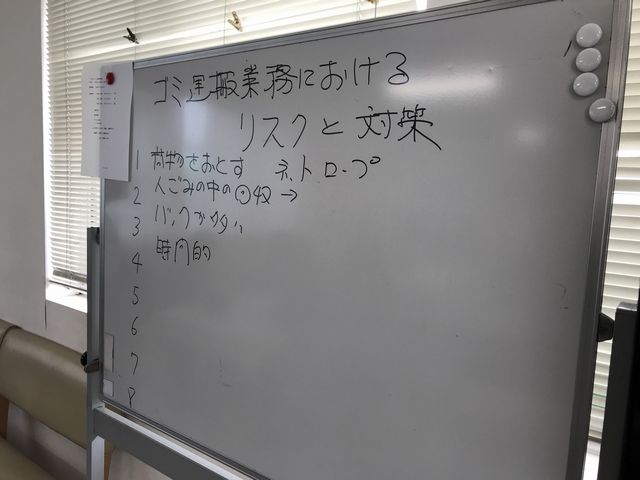 ゴミ運搬業務における
リスクと対策
1 荷物をおとす ネット ロープ
2 人ごみの中の回収 →
3
4 時間的
5
6
7
8